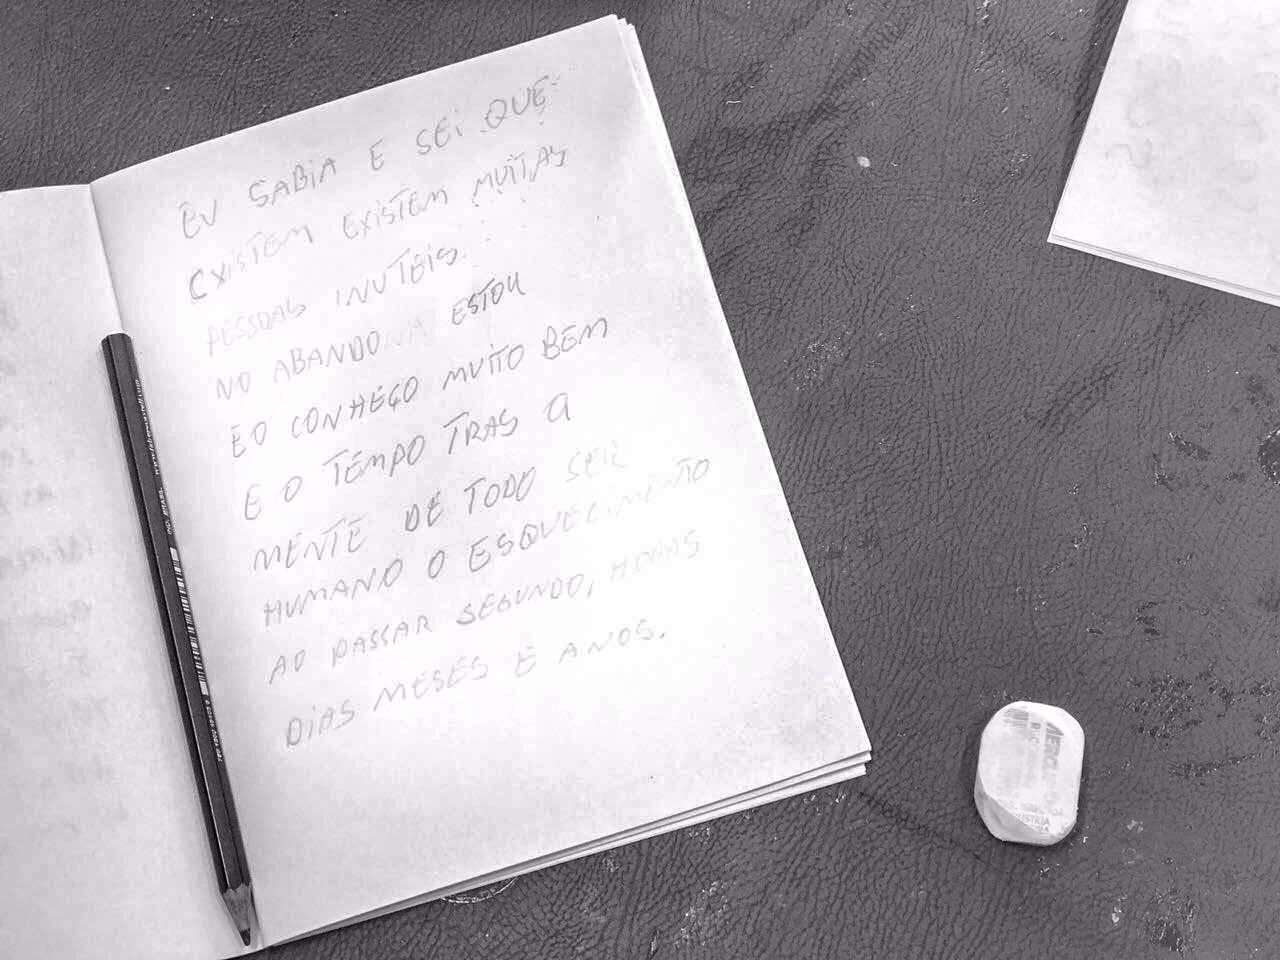 EU SABIA E SEI QUE
EXISTEM EXISTEM MUITAS
PESSOAS INUTEIS.
NO ABANDONA ESTOU
EO CONHEÇO MUITO BEM
E O TEMPO TRAS A
MENTE DE TODO SER
HUMANO O ESQUECIMENTO
AO PASSAR SEGUNDO, HORAS
DIAS MESES E ANOS.
MERCUR